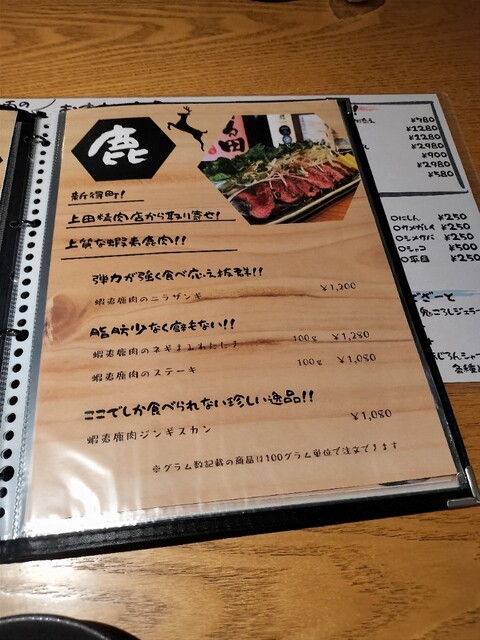 鹿
新得町!
上田精肉店から取り寄せ!
上質な蝦夷鹿肉!!
弾力が強く食べ応え抜群!!
蝦夷鹿肉のニラザンギ ¥1,200
脂肪少なく癖もない!!
蝦夷鹿肉のネギまみれたたき 100g ¥1,280
蝦夷鹿肉のステーキ 100g ¥1,080
ここでしか食べられない珍しい逸品!!
蝦夷鹿肉ジンギスカン ¥1,080
※グラム数記載の商品は100グラム単位で注文できます
¥780
¥1280
¥1280
¥2980
¥900
¥2980
¥580
○にしん ¥250
○サメガレイ ¥250
○シメサバ ¥250
○シャコ ¥500
○平目 ¥250
ざーと
鬼ころしジェラー
じろんシャー
各種